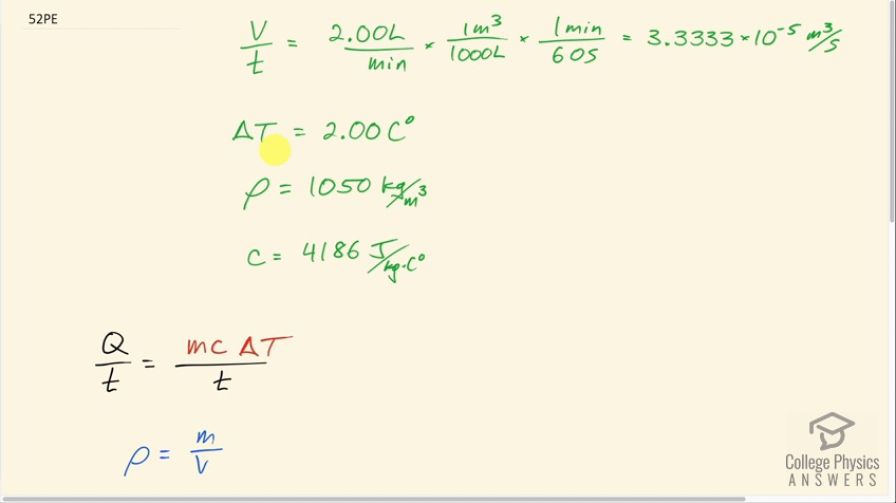 52PE
V/t = 2.00L/min × 1m³/1000L × 1min/60s = 3.3333 × 10⁻⁵ m³/s
ΔT = 2.00 C°
ρ = 1050 kg/m³
c = 4186 J/kg·C°
Q/t = mcΔT/t
ρ = m/V
College Physics
ANSWERS